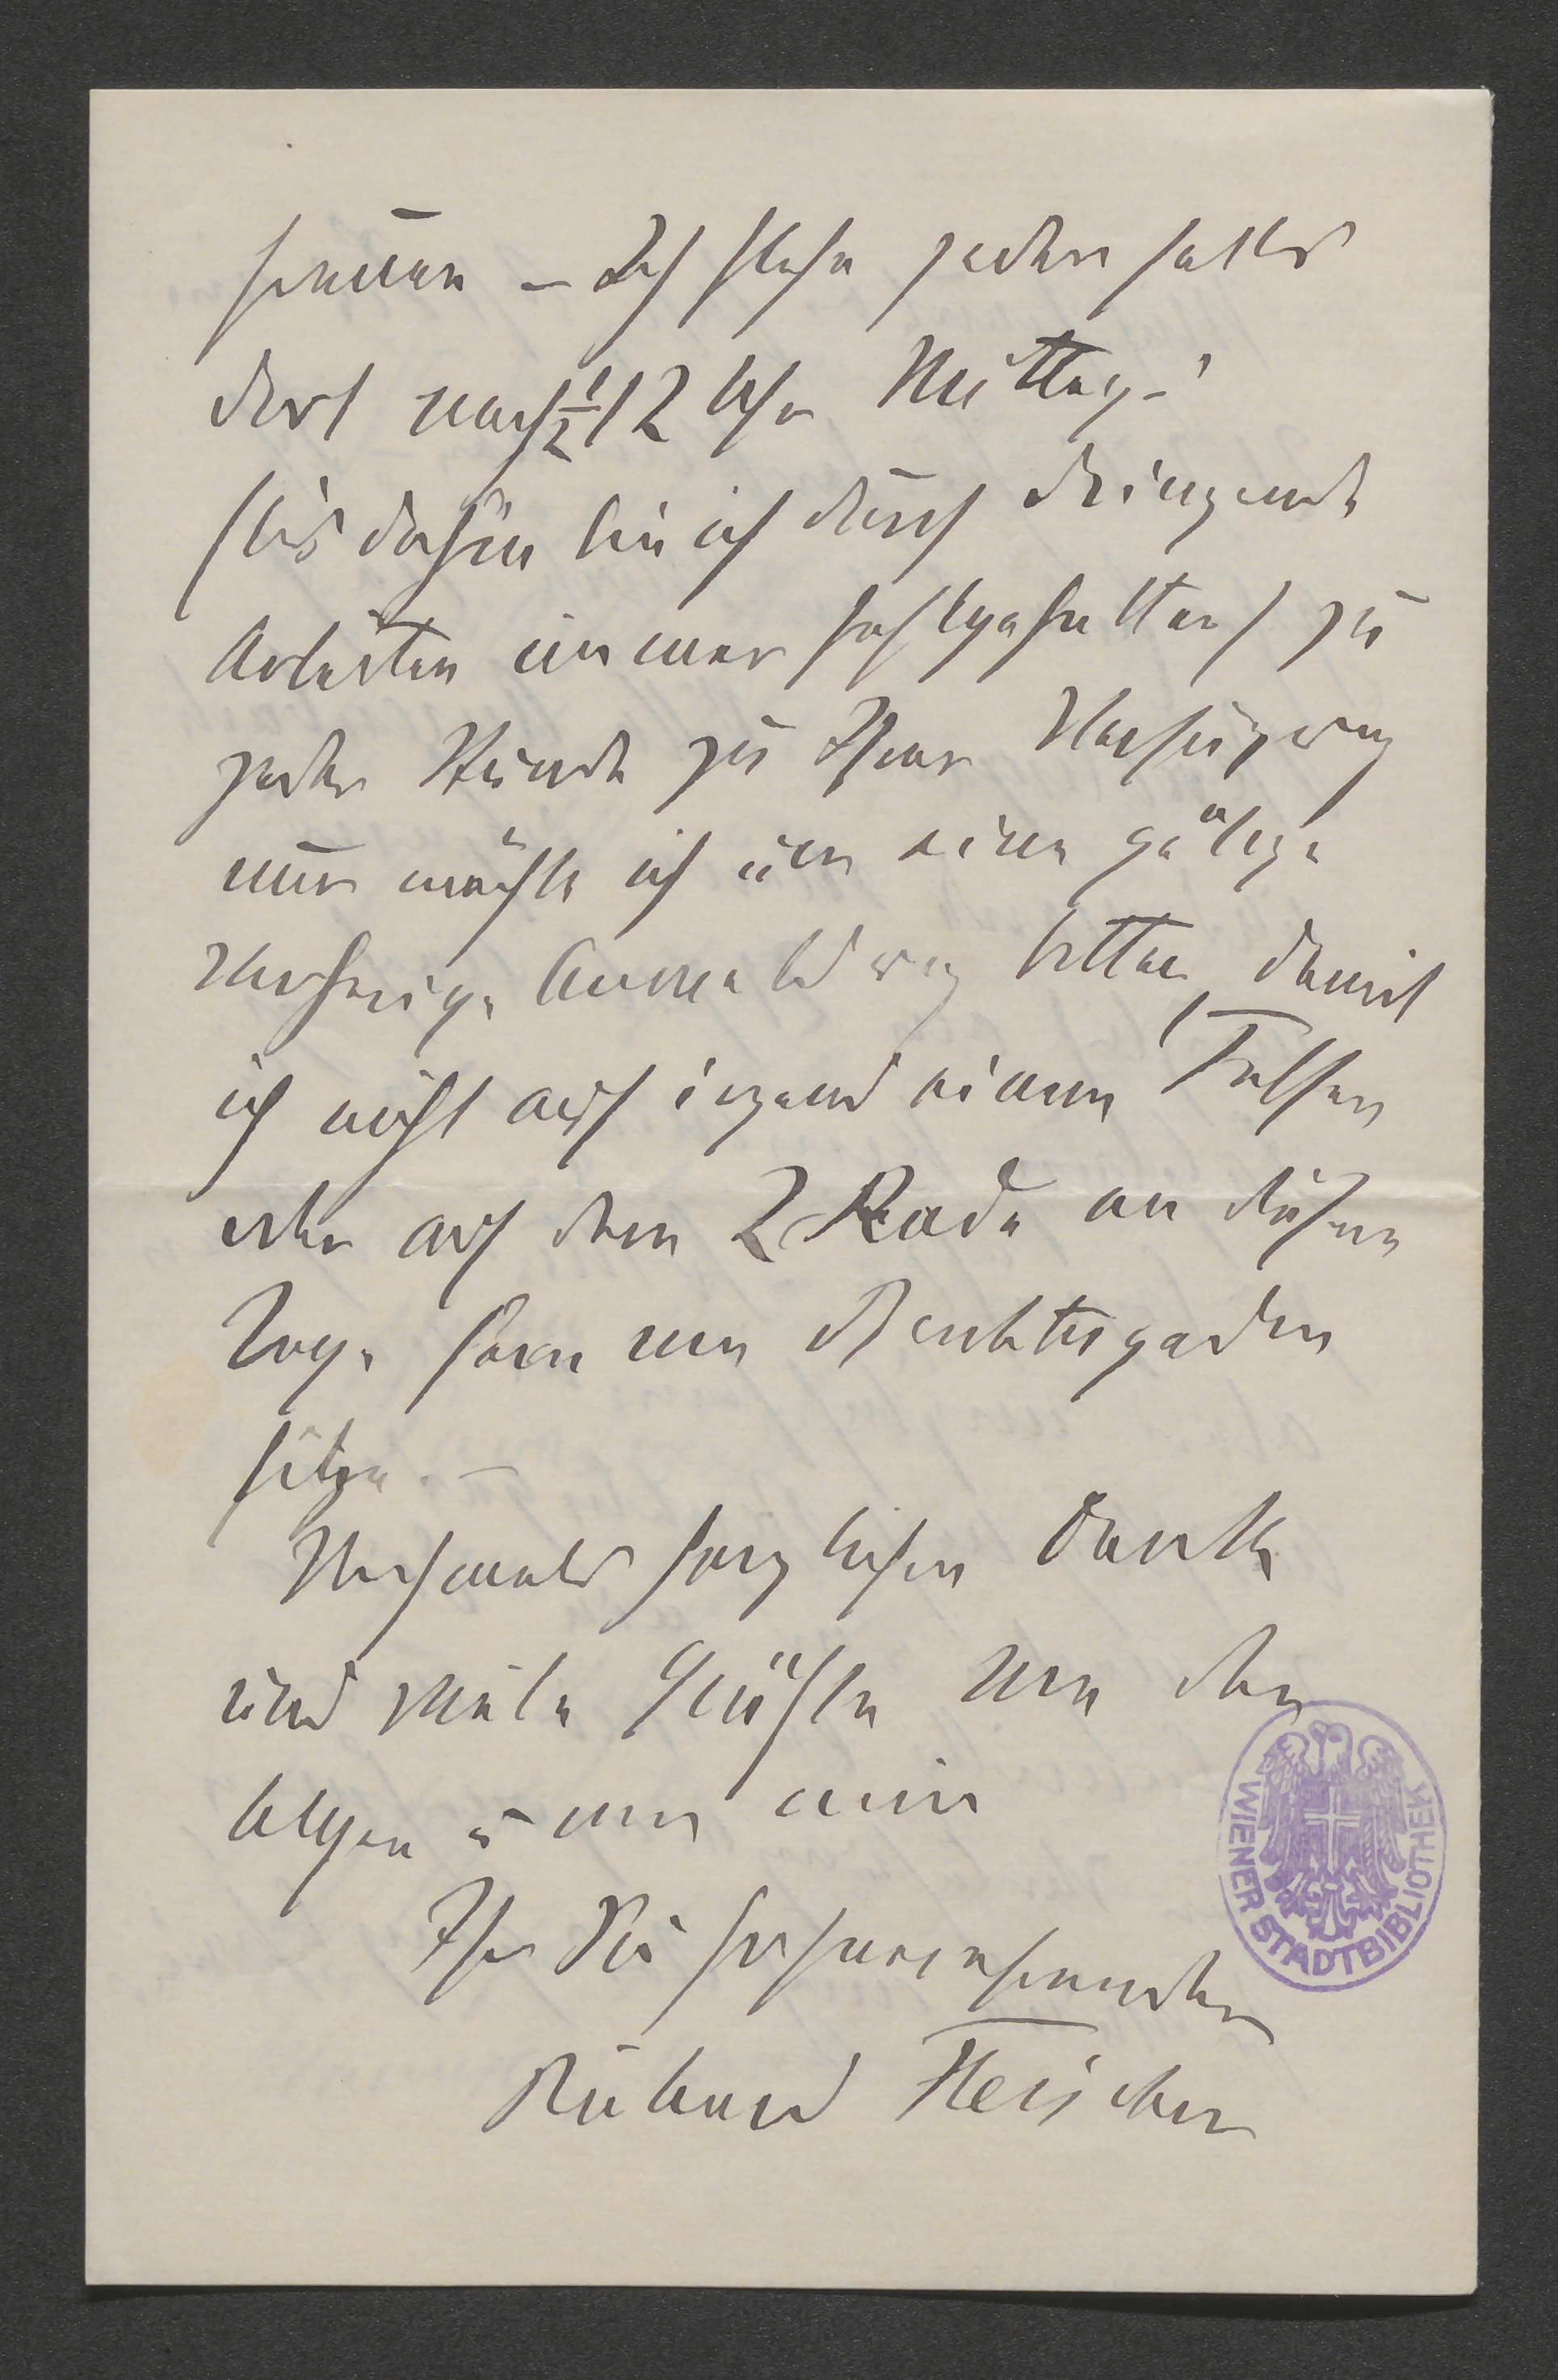 freuen – Ich stehe jedenfalls
dort nach ½12 Uhr Mittag's
(bis dahin bin ich durch dringende
Arbeiten immer festgehalten) zu
jeder Stunde zu Ihrer Verfügung
nur möchte ich um eine gütige
vorherige Anmeldung bitten, damit
ich nicht auf irgend einem Felsen
oder auf dem 2 Rade an diesem
Tage fern von Berchtesgaden
sitze. –
Nochmals herzlichen Dank
und viele Grüße von den
u von
Ihr Sie hochverehrender
Richard Fleischer
WIENER STADTBIBLIOTHEK